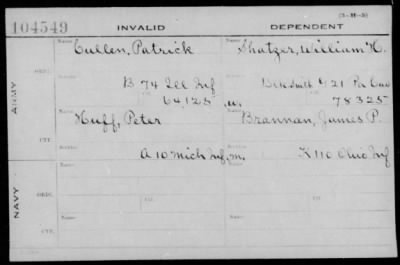 (3-H-3)
104549 INVALID DEPENDENT
Name Name
Cullen, Patrick Shatzer, William H.
ORD.
B 74 Ill Inf 21 Pa Cav
64,125 W. 78325
ARMY
Name Name
Huff, Peter Brannan, James P.
CTF.
A 10 Mich Inf. m. K 110 Ohio Inf
Name Name
ORD.
NAVY
Name Name
CTF.